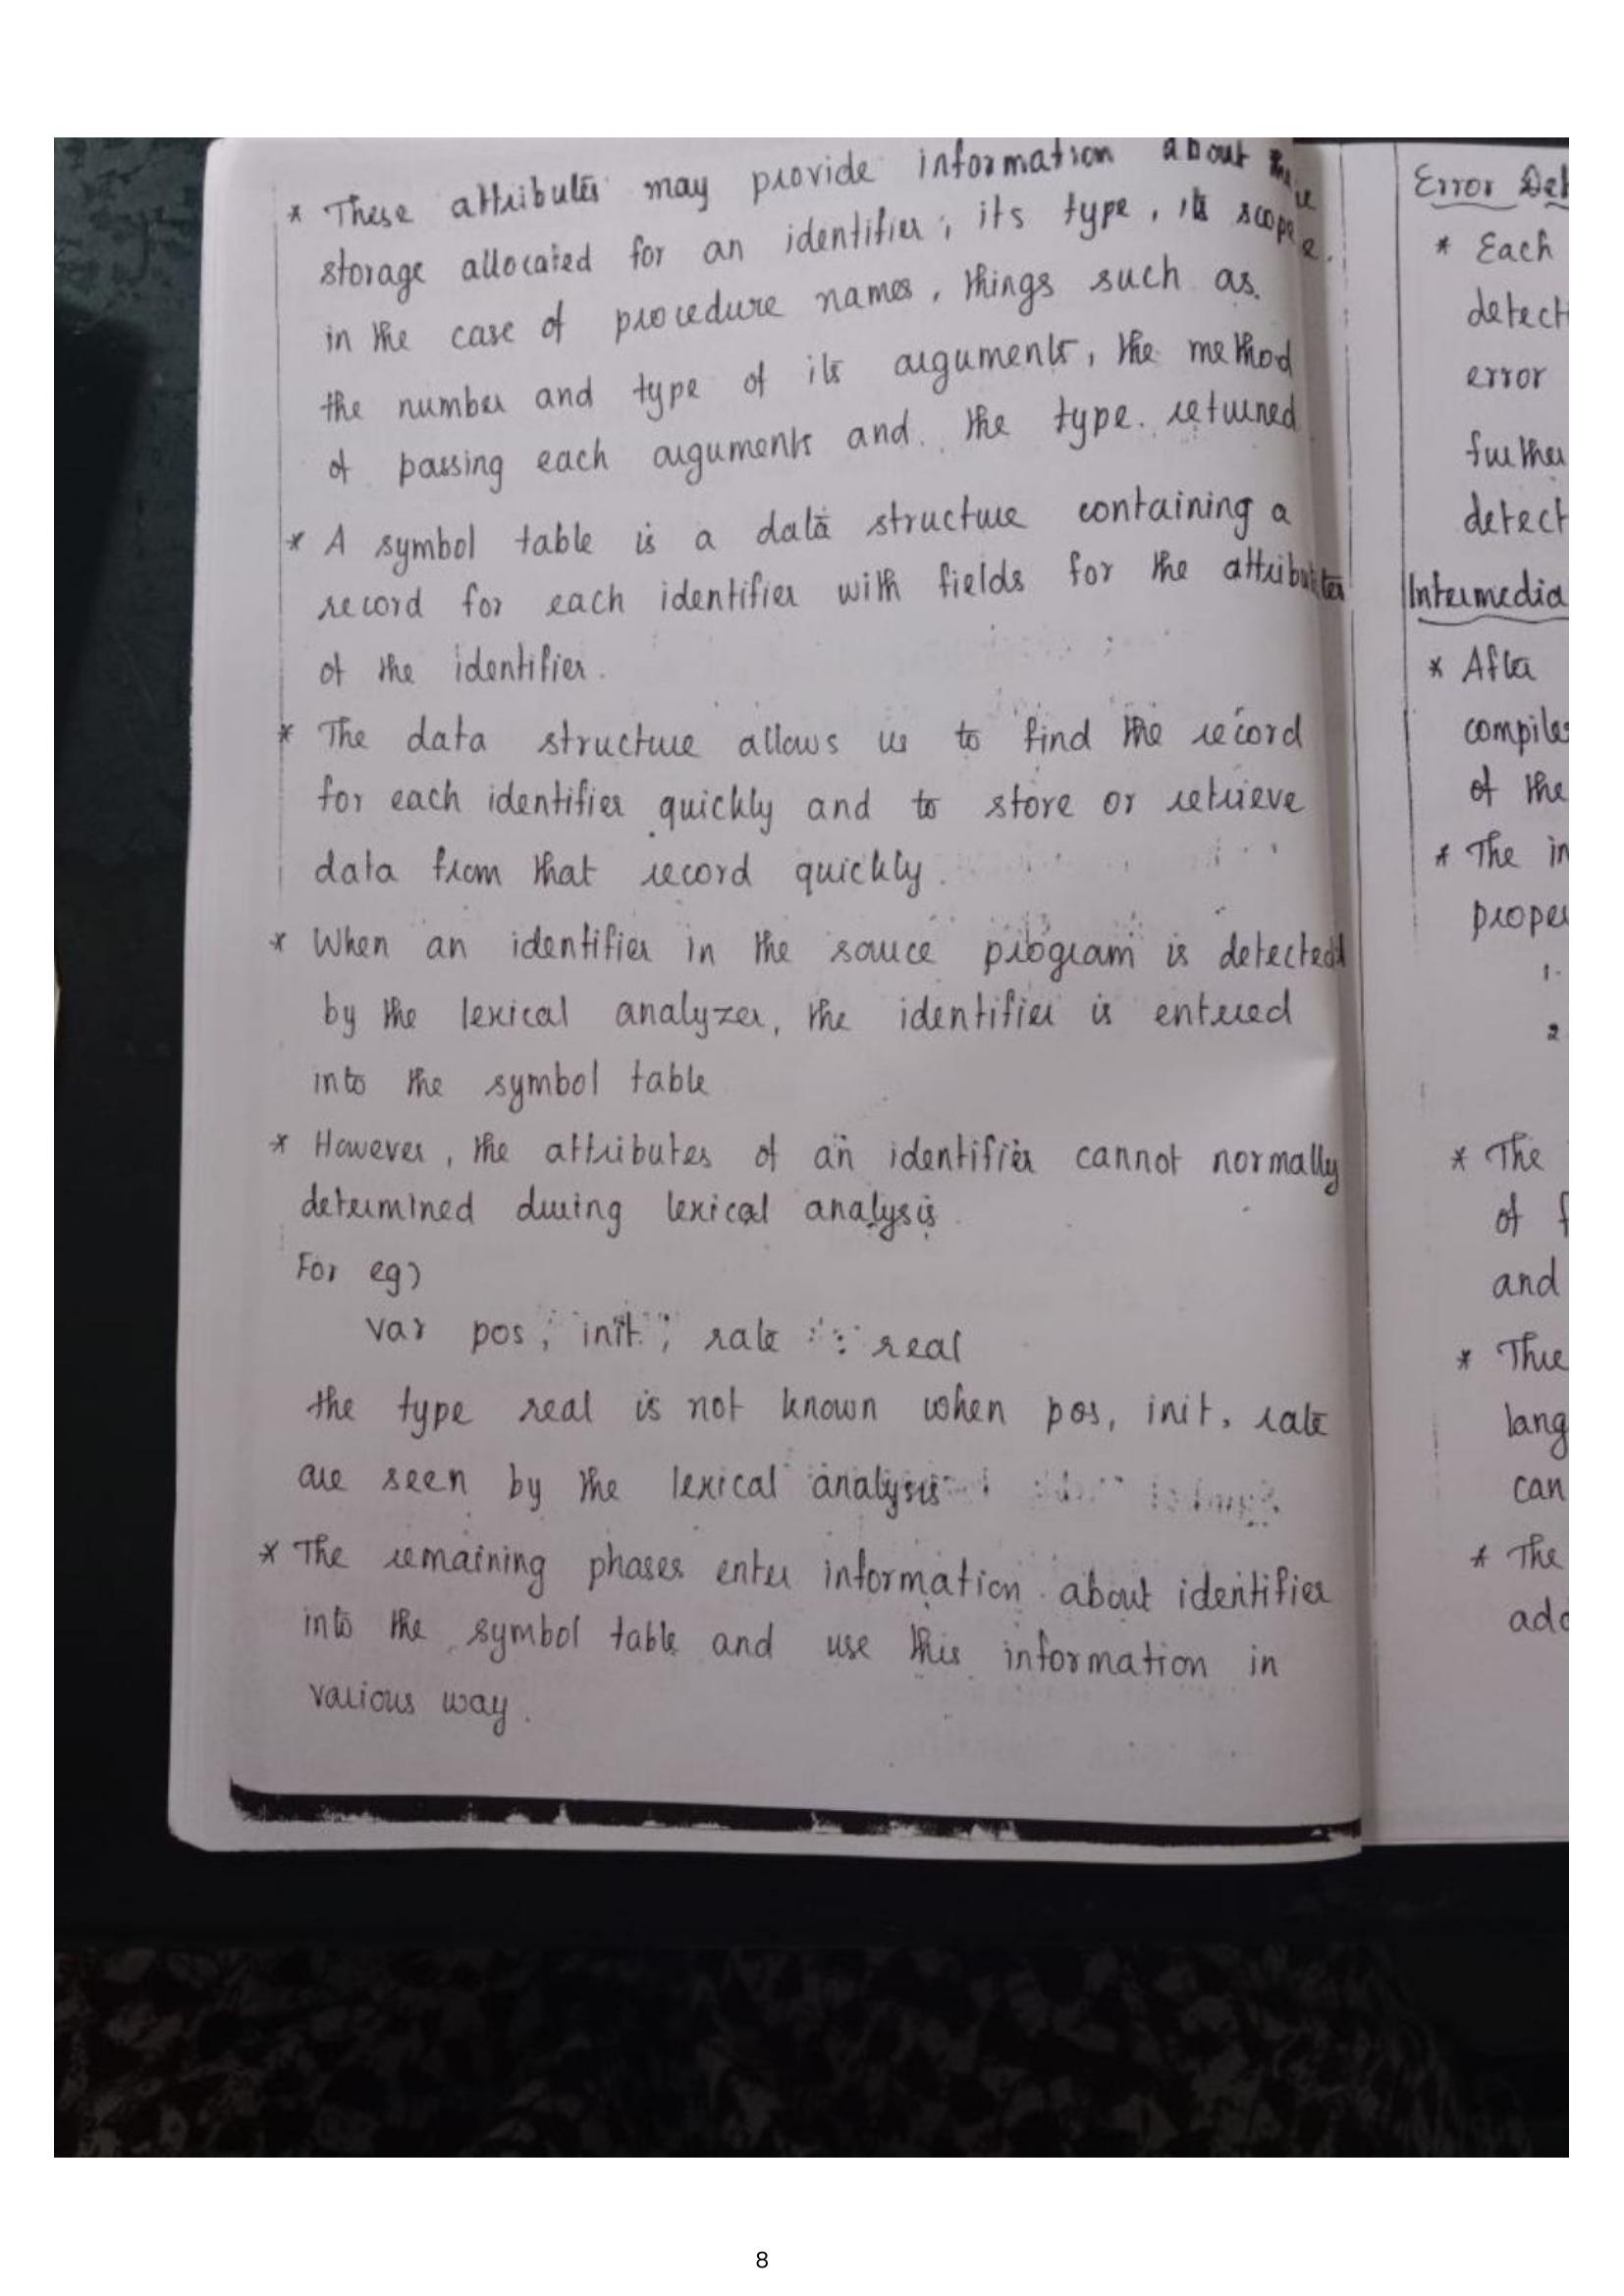 * These attributes may provide information about the
storage allocated for an identifier, its type, its scope
in the case of procedure names, things such as
the number and type of its arguments, the method
of passing each arguments and the type returned
* A symbol table is a data structure containing a
record for each identifier with fields for the attributes
of the identifier.
* The data structure allows us to find the record
for each identifier quickly and to store or retrieve
data from that record quickly.
* When an identifier in the souce program is detected
by the lexical analyzer, the identifier is entered
into the symbol table
* However, the attributes of an identifier cannot normally
determined during lexical analysis.
For eg)
var pos, init, rate : real
the type real is not known when pos, init, rate
are seen by the lexical analysis
* The remaining phases enter information about identifier
into the symbol table and use this information in
various way.
Error Det
* Each
detecti
error
further
detect
Intermedia
* After
compiles
of the
* The in
proper
1.
2.
* The
of f
and
lang
can
* The
add
8